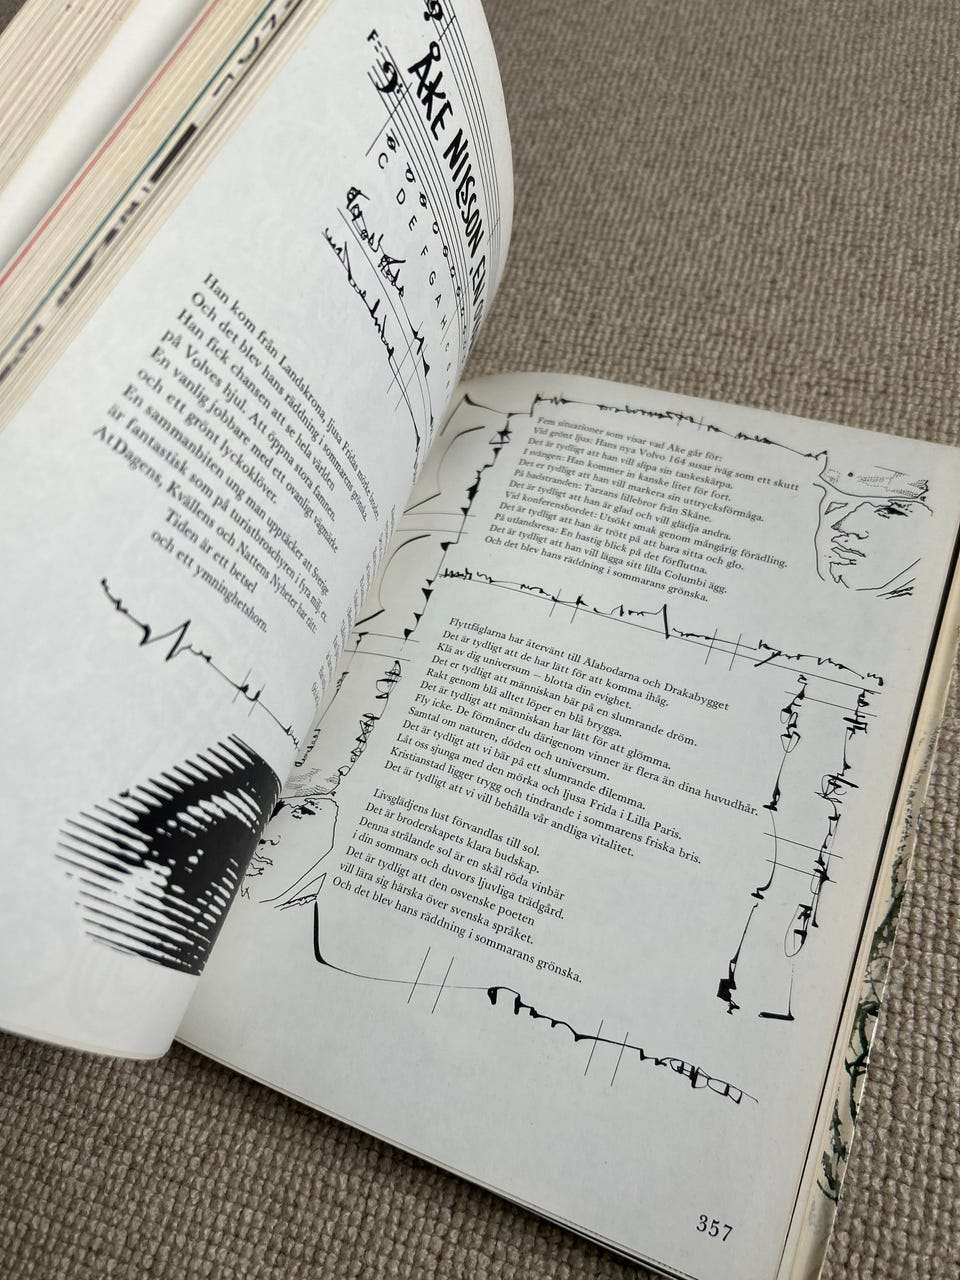 ÅKE NILSSON EN
F:
C D E F G A H C
Han kom från Landskrona, ljusa Fridas mörke broder.
Och det blev hans räddning i sommarens grönska.
Han fick chansen att se hela världen
på Volves hjul. Att öppna stora famnen
En vanlig jobbare med ett ovanligt vågmärke
och ett grönt lyckoklöver.
En sammanbiten ung man upptäcker att Sverige
är fantastiskt som på turistbroschyren i fyra milj. ex.
AtDagens, Kvällens och Nattens Nyheter har rätt:
Tiden är ett betsel
och ett ymninghetshorn.
Fem situationer som visar vad Åke går för:
Vid grönt ljus: Hans nya Volvo 164 susar iväg som ett skutt
Det är tydligt att han vill slipa sin tankeskärpa.
I svängen: Han kommer in kanske litet för fort.
Det er tydligt att han vill markera sin uttrycksförmåga.
På badstranden: Tarzans lillebror från Skåne.
Det är tydligt att han är glad och vill glädja andra.
Vid konferensbordet: Utsökt smak genom mångårig förädling.
Det är tydligt att han är trött på att bara sitta och glo.
På utlandsresa: En hastig blick på det förflutna.
Det är tydligt att han vill lägga sitt lilla Columbi ägg.
Och det blev hans räddning i sommarans grönska.
Flyttfåglarna har återvänt till Ålabodarna och Drakabygget
Det är tydligt att de har lätt för att komma ihåg.
Klä av dig universum – blotta din evighet.
Det er tydligt att människan bär på en slumrande dröm.
Rakt genom blå alltet löper en blå brygga.
Det är tydligt att människan har lätt för att glömma.
Fly icke. De förmåner du därigenom vinner är flera än dina huvudhår.
Samtal om naturen, döden och universum.
Det är tydligt att vi bär på ett slumrande dilemma.
Låt oss sjunga med den mörka och ljusa Frida i Lilla Paris.
Kristianstad ligger trygg och tindrande i sommarens friska bris.
Det är tydligt att vi vill behålla vår andliga vitalitet.
Livsglädjens lust förvandlas till sol.
Det är broderskapets klara budskap.
Denna strålande sol är en skål röda vinbär
i din sommars och duvors ljuvliga trädgård.
Det är tydligt att den osvenske poeten
vill lära sig härska över svenska språket.
Och det blev hans räddning i sommarans grönska.
357